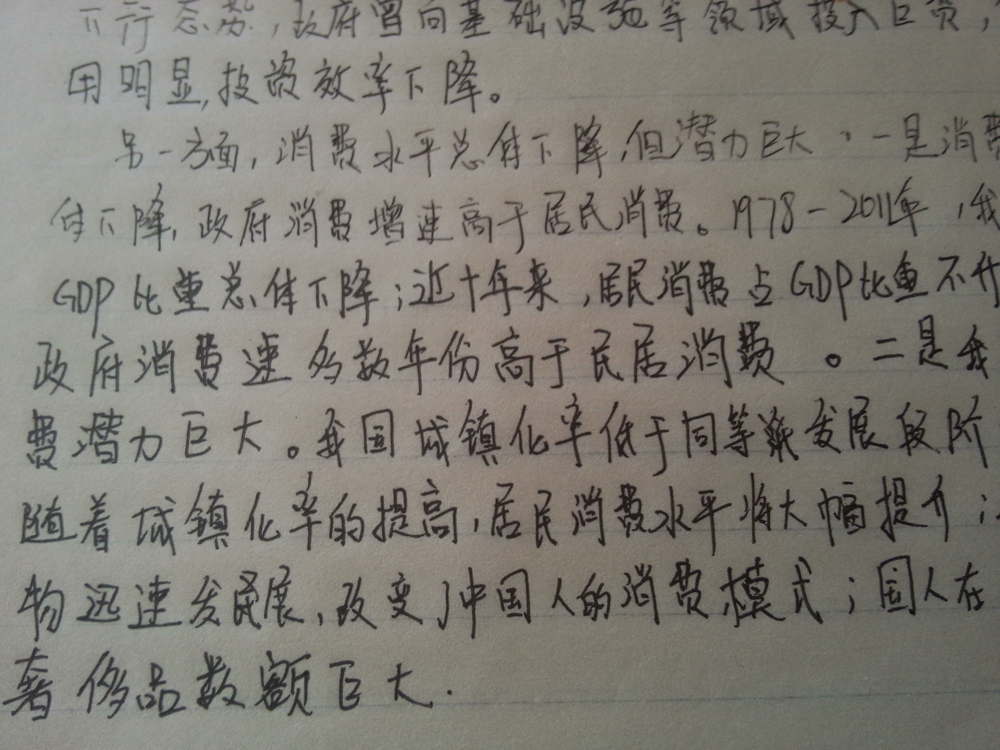 下行态势,政府曾向基础设施等领域投入巨资,
用明显,投资效率下降。
另一方面,消费水平总体下降,但潜力巨大.一是消费
体下降,政府消费增速高于居民消费。1978-2011年,我
GDP比重总体下降;近十年来,居民消费占GDP比重不升
政府消费速多数年份高于民居消费。二是我
费潜力巨大。我国城镇化率低于同等发展段阶
随着城镇化率的提高,居民消费水平将大幅提升;
物迅速发展,改变了中国人的消费模式;国人在
奢侈品数额巨大.